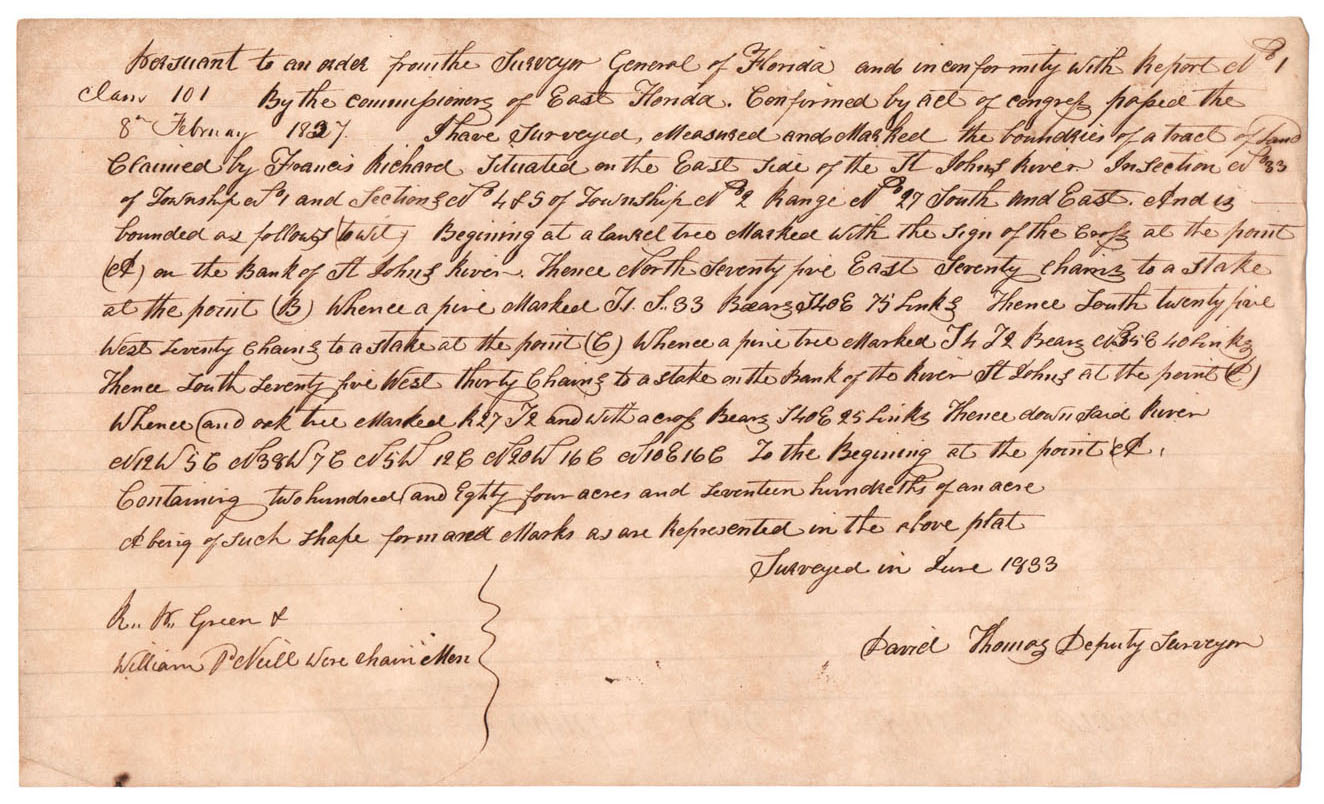 Persuant to an order from the Surveyor General of Florida and in conformity with Report No 1
Class 101 By the commissioners of East Florida. Confirmed by act of congress passed the
8th February 1827. I have Surveyed, Measured and Marked the boundries of a tract of Land
Claimed by Francis Richard Situated on the East Side of the St Johns River In Section No 33
of Township No 1 and Sections No 4 & 5 of Township No 2 Range No 27 South and East. And is
bounded as follows (to wit) Begining at a laurel tree Marked with the Sign of the Cross at the point
(A) on the Bank of St Johns River. Thence North Seventy five East Seventy Chains to a Stake
at the point (B) Whence a pine Marked T1. S..33 Bears S40E 75 Links Thence South twenty five
West Seventy Chains to a stake at the point (C) Whence a pine tree Marked T4 T2 Bears N35E 40 Links
Thence South Seventy five West thirty Chains to a stake on the Bank of the River St Johns at the point
Whence and oak tree Marked R27 T2 and with a cross Bears S40E 25 Links Thence down said River
N12W 5C N38W 7C N5W 12C N20W 16C N10E 16C To the Begining at the point A.
Containing two hundred and Eighty four acres and Seventeen hundreths of an acre
& being of such Shape form and Marks as are Represented in the above plat
Surveyed in June 1833
R.. R.. Green &
William McNeill Were chain Men
David Thomas Deputy Surveyor